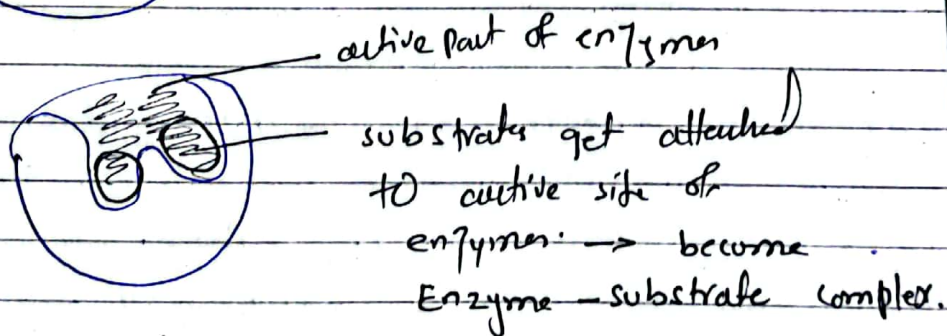 active part of enzymes
substrates get attached
to active site of
enzymes. → become
Enzyme - substrate complex.